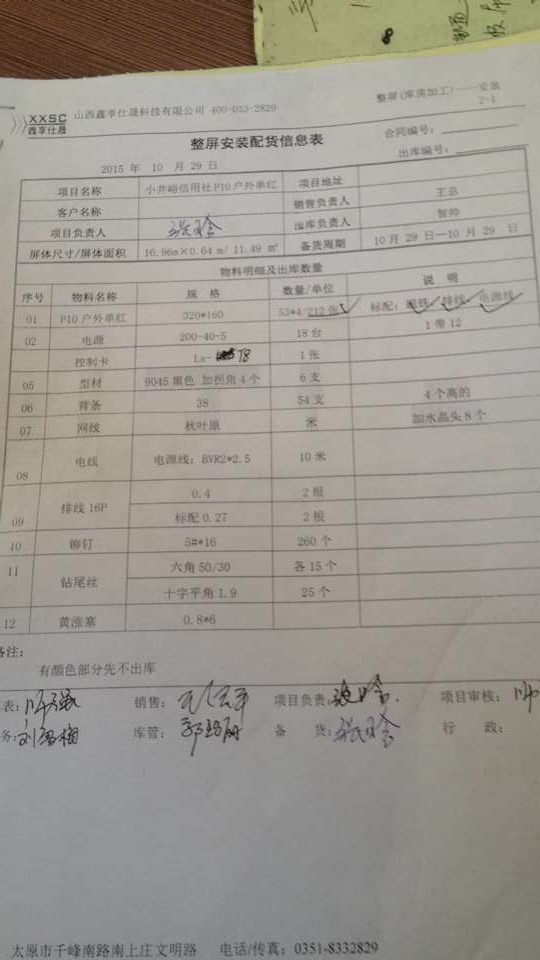 8
XXSC 山西鑫享仕晟科技有限公司 400-033-2829 整屏(库房加工)——安装
鑫享仕晟 2-1
整屏安装配货信息表 合同编号:
2015 年 10 月 29 日 出库编号:
项目名称 小井峪信用社P10户外单红 项目地址
客户名称 销售负责人 王总
项目负责人 出库负责人 智帅
屏体尺寸/屏体面积 16.96m×0.64 m/ 11.49 ㎡ 备货周期 10 月 29 日—10 月 29 日
物料明细及出库数量
序号 物料名称 规 格 数量/单位 说 明
01 P10 户外单红 320*160 53*4/212 张 标配: 磁铁 排线 电源线
02 电源 200-40-5 18 台 1 带 12
控制卡 Ls- T8 1 张
05 型材 9045 黑色 加拐角 4 个 6 支
06 背条 38 54 支 4 个高的
07 网线 秋叶原 米 加水晶头 8 个
08 电线 电源线: BVR2*2.5 10 米
09 排线 16P 0.4 2 根
标配 0.27 2 根
10 铆钉 5#*16 260 个
11 钻尾丝 六角 50/30 各 15 个
十字平角 1.9 25 个
12 黄涨塞 0.8*6
备注:
有颜色部分先不出库
表: 销售: 项目负责: 项目审核:
务: 刘雪梅 库管: 备 货: 行 政:
太原市千峰南路南上庄文明路 电话/传真: 0351-8332829